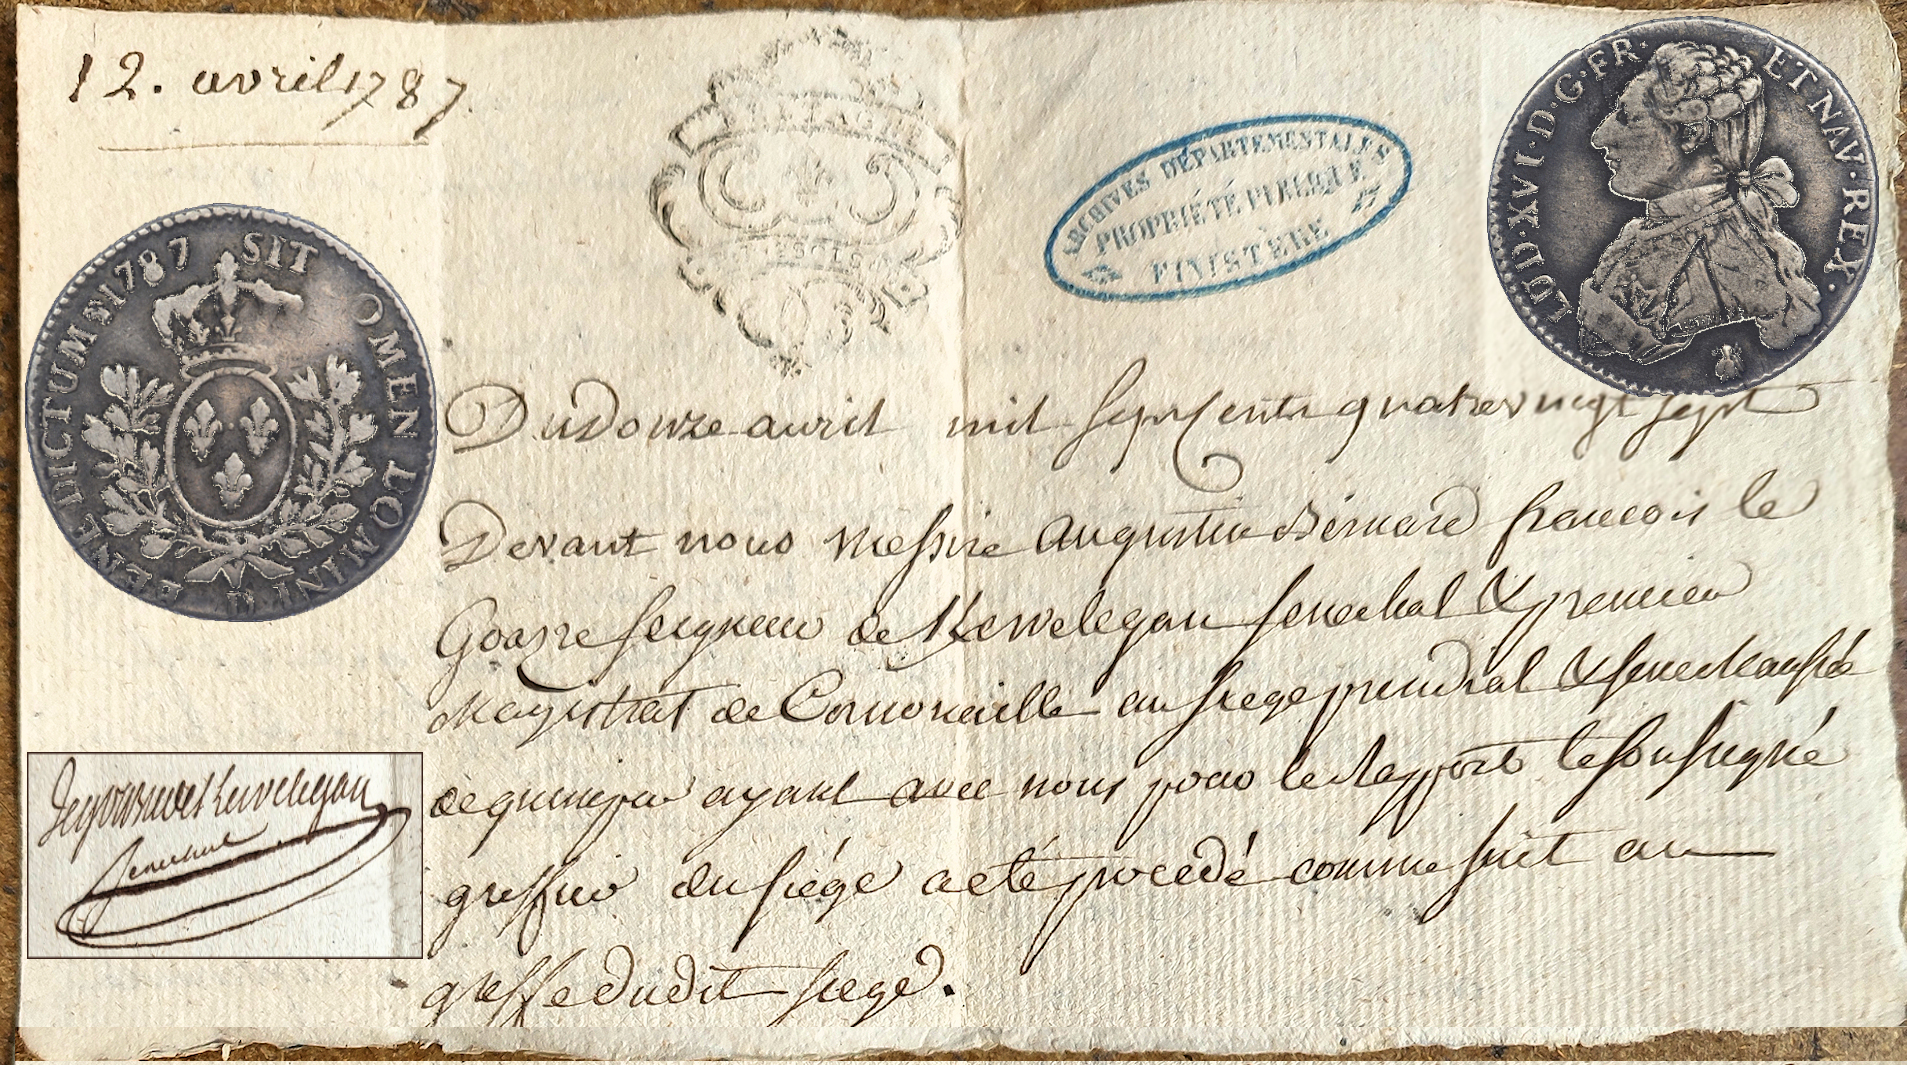 12. avril 1787
BRETAGNE
ARCHIVES DÉPARTEMENTALES
PROPRIÉTÉ PUBLIQUE
FINISTÈRE
LUD·XVI·D·G·FR· ET NAV·REX·
1787 SIT NOMEN DOMINI BENEDICTUM
Du douze avril mil sept cents quatrevingt sept
Devant nous Messire Augustin Bernard francois le
Goazre seigneur de Kervelegan senechal & premier
Magistrat de Cornoueille au siege presidial & senechaussée
de quimper ayant avec nous pour le Rapport le soussigné
greffier du siége a eté procedé comme suit au
greffe dudit siege.
Legoazredekervelegan
senechal